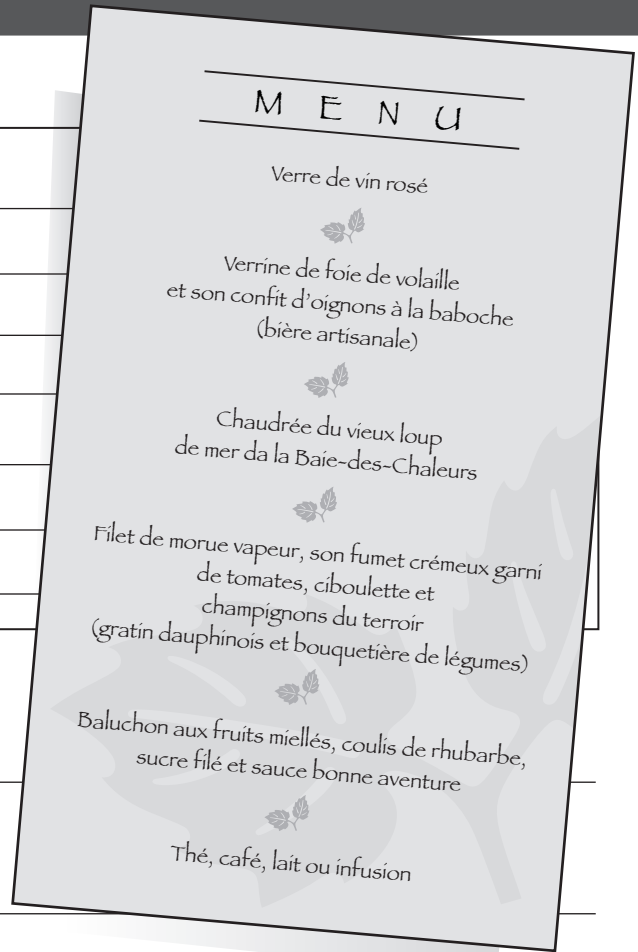 MENU
Verre de vin rosé
Verrine de foie de volaille
et son confit d'oignons à la baboche
(bière artisanale)
Chaudrée du vieux loup
de mer da la Baie-des-Chaleurs
Filet de morue vapeur, son fumet crémeux garni
de tomates, ciboulette et
champignons du terroir
(gratin dauphinois et bouquetière de légumes)
Baluchon aux fruits miellés, coulis de rhubarbe,
sucre filé et sauce bonne aventure
Thé, café, lait ou infusion